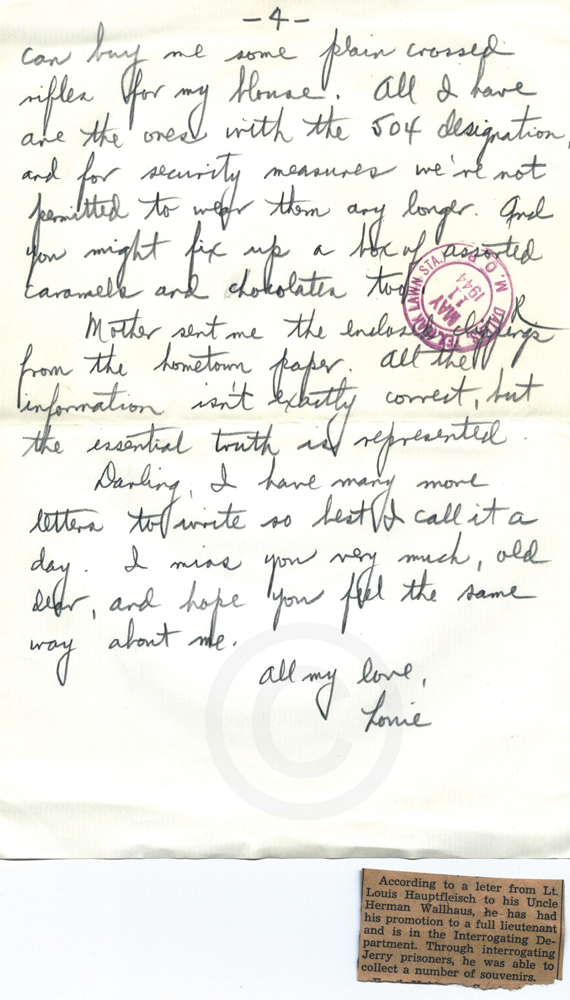 -4-
can buy me some plain crossed
rifles for my blouse. All I have
are the ones with the 504 designation,
and for security measures we're not
permitted to wear them any longer. And
you might fix up a box of assorted
caramels and chocolates too.
Mother sent me the enclosed clippings
from the hometown paper. All the
information isn't exactly correct, but
the essential truth is represented.
Darling, I have many more
letters to write so best I call it a
day. I miss you very much, old
dear, and hope you feel the same
way about me.
All my love,
Louie
LAWN STA.
M.O.B.
MAY
11
1944
According to a leter from Lt.
Louis Hauptfleisch to his Uncle
Herman Wallhaus, he has had
his promotion to a full lieutenant
and is in the Interrogating De-
partment. Through interrogating
Jerry prisoners, he was able to
collect a number of souvenirs.